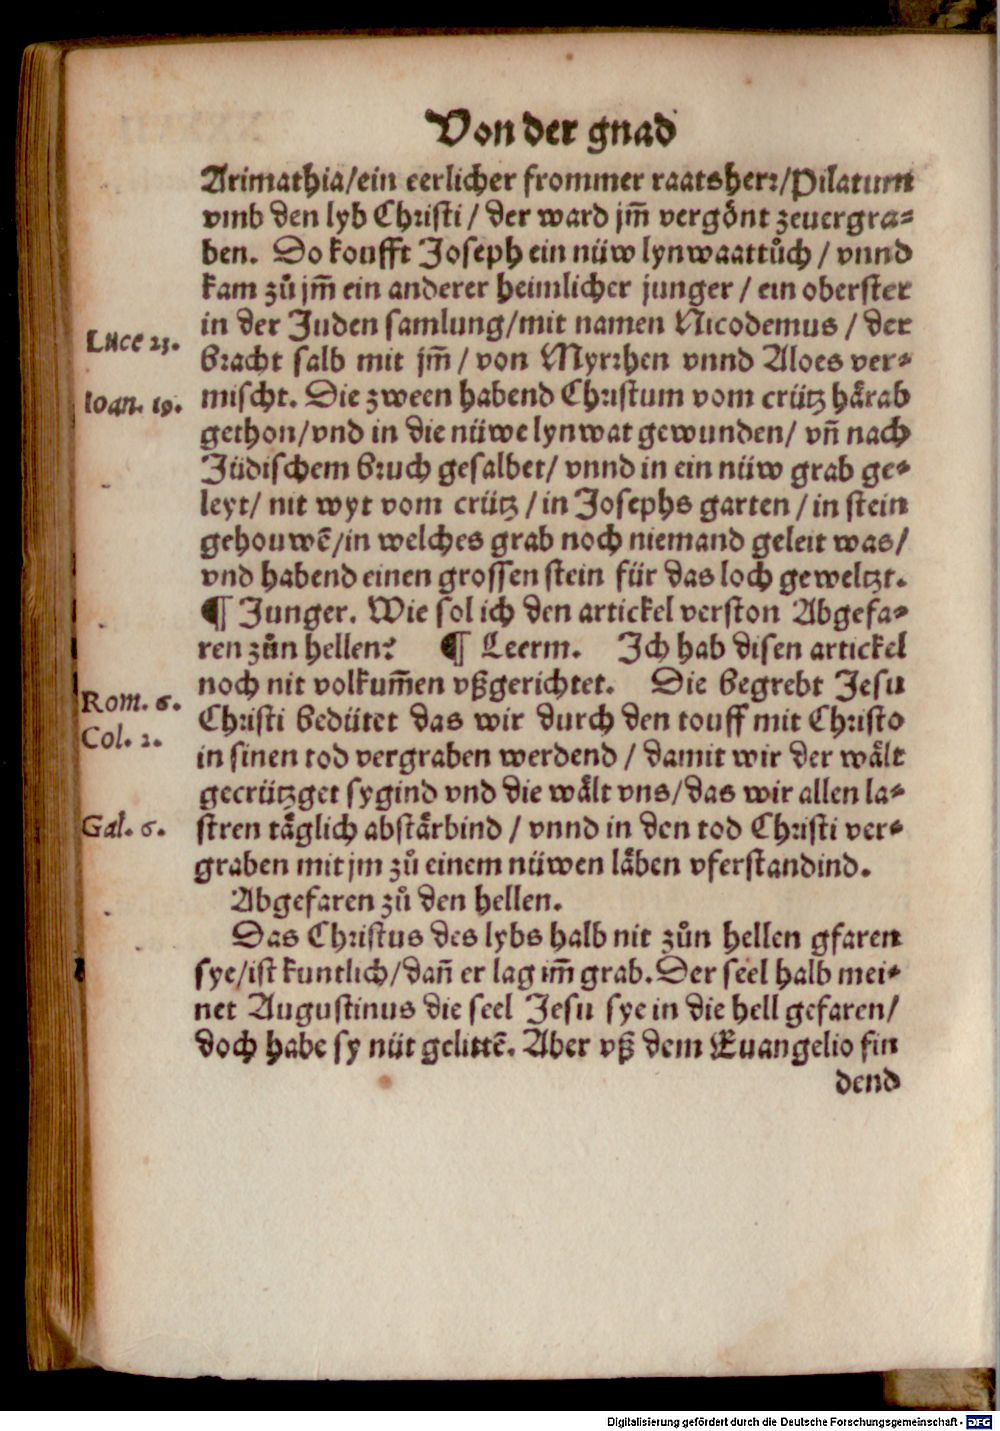 Von der gnad
Arimathia/ein eerlicher frommer raatsherr/Pilatum
vmb den lyb Christi / der ward jm̃ vergönt zeuergra⸗
ben. Do koufft Joseph ein nüw lynwaattůch / vnnd
kam zů jm̃ ein anderer heimlicher junger / ein oberster
in der Juden samlung/mit namen Nicodemus / der
Luce 23.
bracht salb mit jm̃ / von Myrrhen vnnd Aloes ver⸗
Ioan. 19.
mischt. Die zween habend Christum vom crütz härab
gethon/vnd in die nüwe lynwat gewunden/ vn̄ nach
Jüdischem bruch gesalbet/ vnnd in ein nüw grab ge⸗
leyt/ nit wyt vom crütz / in Josephs garten / in stein
gehouwē/in welches grab noch niemand geleit was/
vnd habend einen grossen stein für das loch geweltzt.
¶ Junger. Wie sol ich den artickel verston Abgefa⸗
ren zůn hellen? ¶ Leerm. Ich hab disen artickel
noch nit volkum̃en vßgerichtet. Die begrebt Jesu
Rom. 6.
Christi bedütet das wir durch den touff mit Christo
Col. 2.
in sinen tod vergraben werdend / damit wir der wält
gecrützget sygind vnd die wält vns/das wir allen la⸗
Gal. 6.
stren täglich abstärbind / vnnd in den tod Christi ver⸗
graben mit jm zů einem nüwen läben vferstandind.
Abgefaren zů den hellen.
Das Christus des lybs halb nit zůn hellen gfaren
sye/ist kuntlich/dan̄ er lag im̃ grab. Der seel halb mei⸗
net Augustinus die seel Jesu sye in die hell gefaren/
doch habe sy nüt gelittē. Aber vß dem Euangelio fin
dend
Digitalisierung gefördert durch die Deutsche Forschungsgemeinschaft - DFG